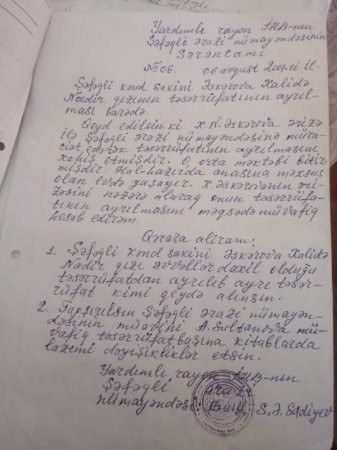 Yardımlı rayon İHB-nın
Şəfəqli ərazi nümayəndəsinin
Sərəncamı
№ 06. 06 avqust 2001-ci il.
Şəfəqli kənd sakini Əskərova Xalidə
Nadir qızının təsərrüfatının ayrıl-
ması barədə.
Qeyd edilsin ki X.N.Əskərova ərizə
ilə Şəfəqli ərazi nümayəndəsinə müra-
ciət edərək təsərrüfatının ayrılmasını
xahiş etmişdir. O, orta məktəbi bitir-
mişdir. Hal-hazırda anasına məxsus
olan evdə yaşayır. X.Əskərovanın əri-
zəsini nəzərə alaraq onun təsərrüfa-
tının ayrılmasını məqsədə müvafiq
hesab edirəm.
Qərara alıram:
1. Şəfəqli kənd sakini Əskərova Xalidə
Nadir qızı əvvəllər daxil olduğu
təsərrüfatdan ayrılıb ayrı təsər-
rüfat kimi qeydə alınsın.
2. Tapşırılsın Şəfəqli ərazi nümayən-
dəsinin müavini A.Sultanova mü-
vafiq təsərrüfatbaşına kitablarda
lazımi dəyişikliklər etsin.
Yardımlı rayon İHB-nın
Şəfəqli ərazi
nümayəndəsi: S.Ə.Sadıyev